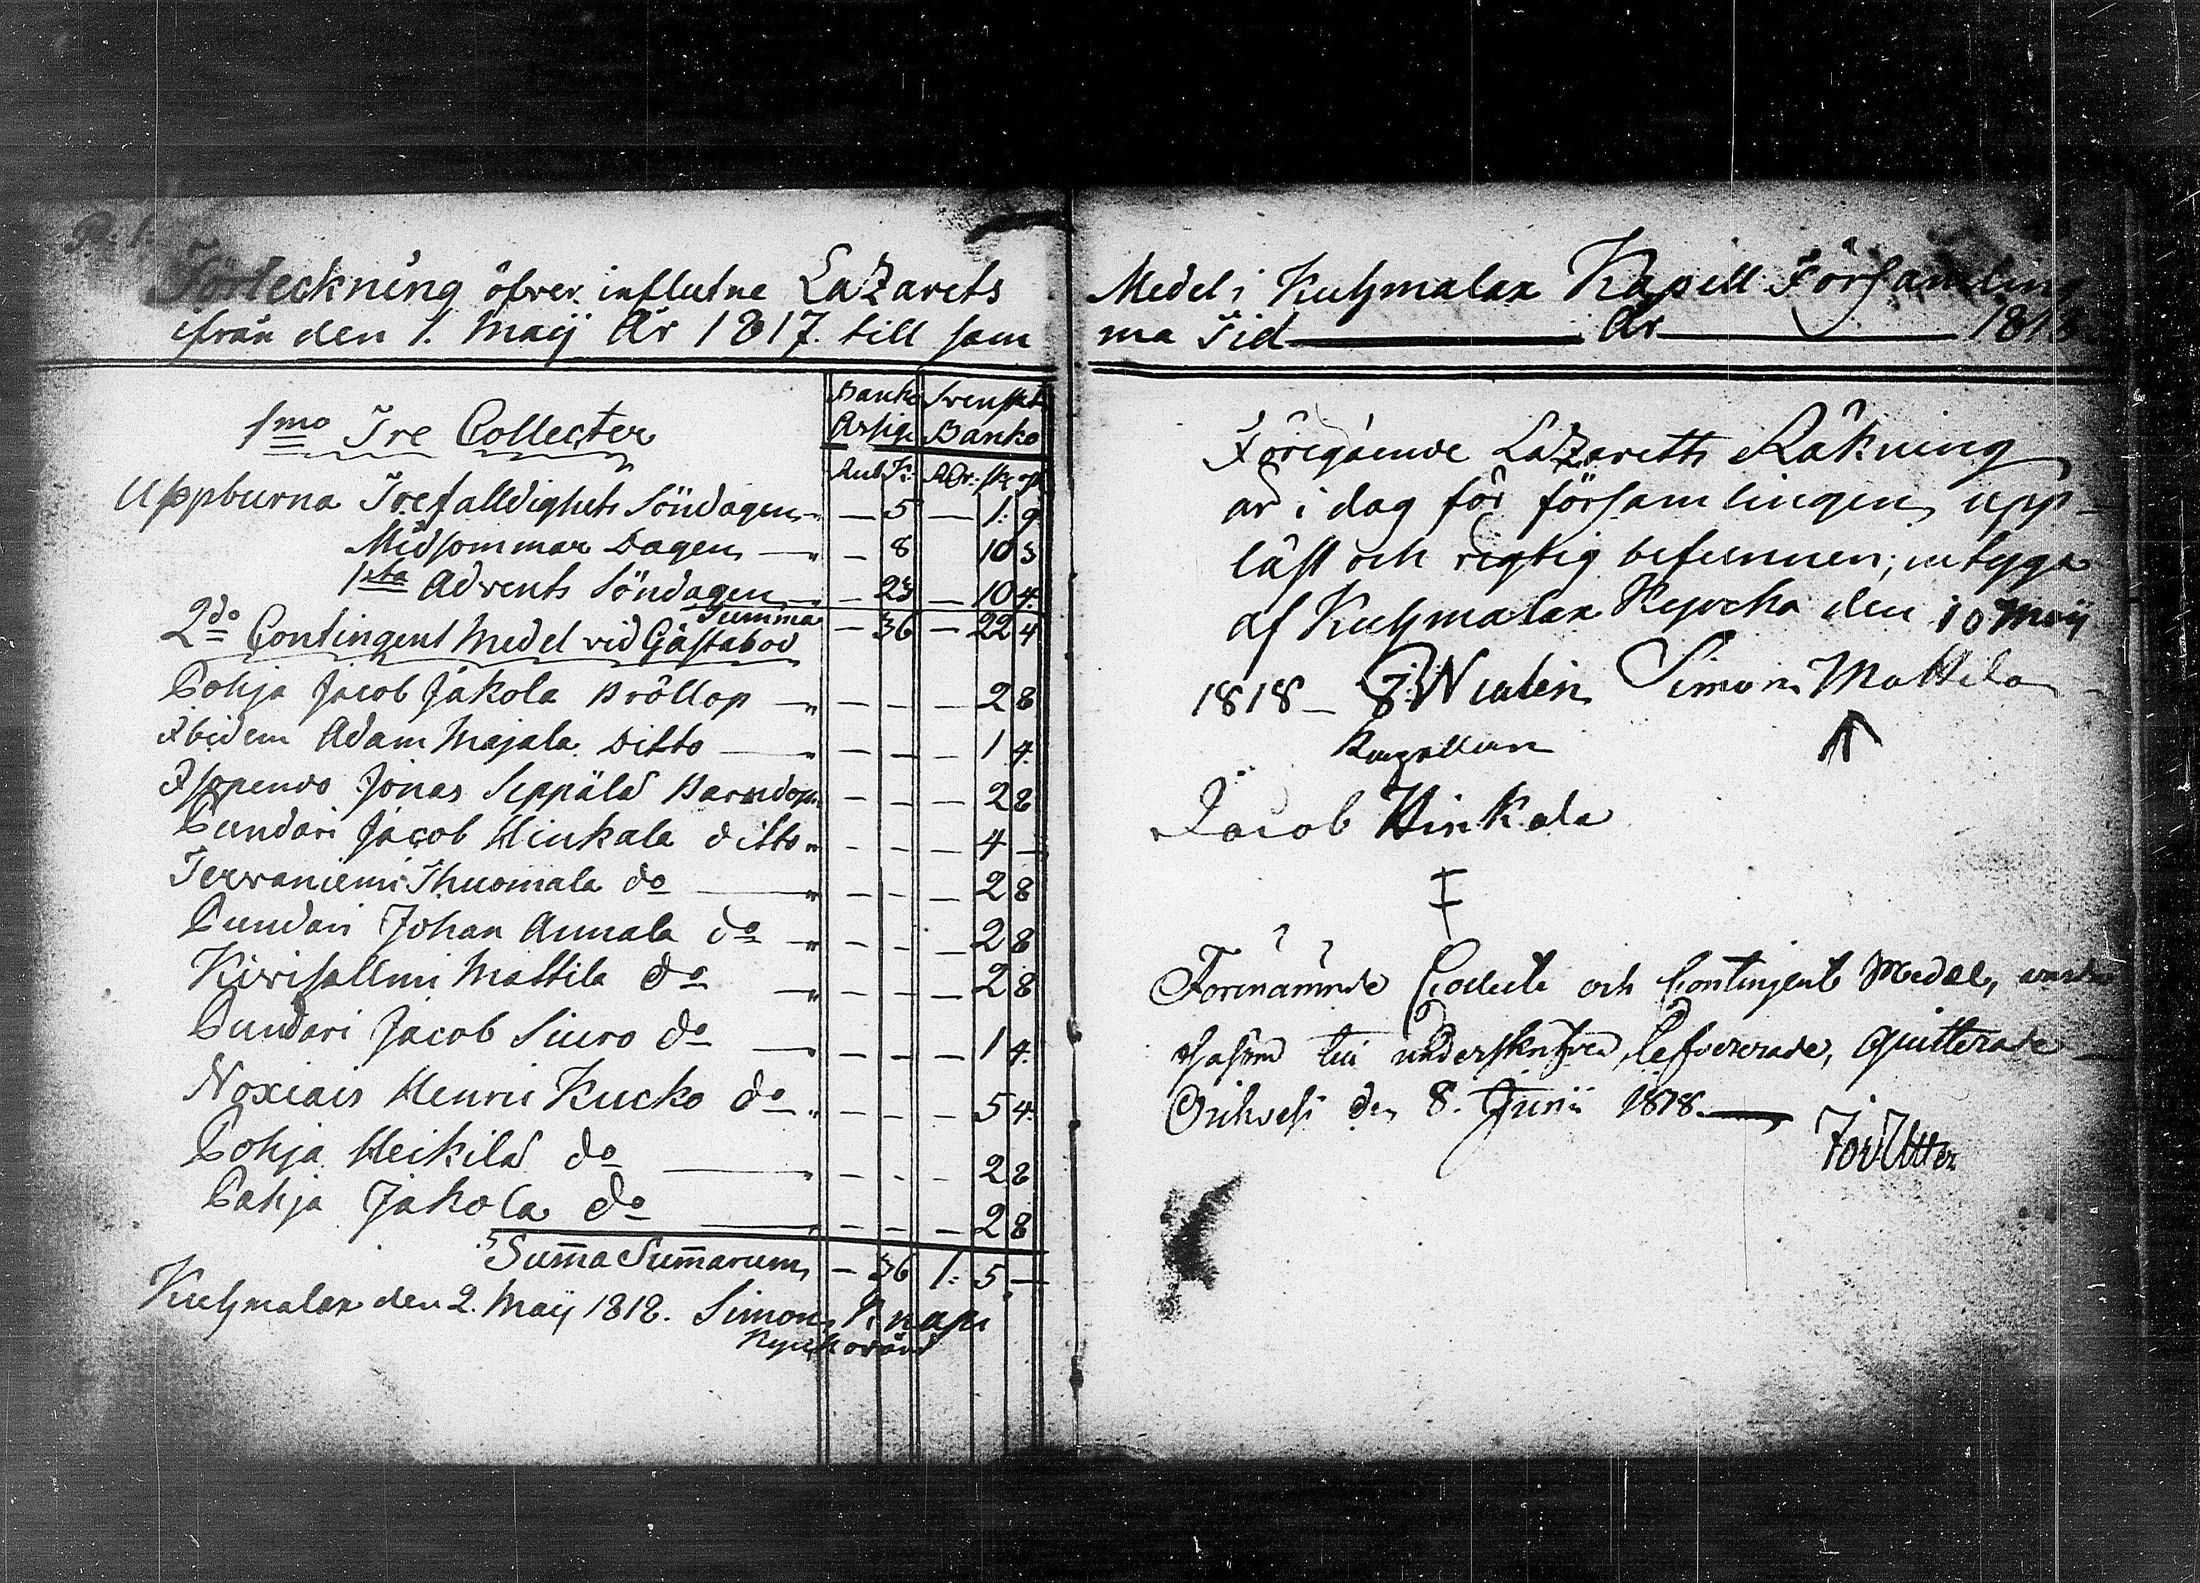 Förteckning öfver influtne Lazarets
ifrån den 1. Maij År 1817. till sam
1mo Tre Collecter
Banko Assig. Svenskt Banko
Rub K: RDr. sk
Uppburna Trefalldighets Söndagen — 5 — 1: 9
Midsommar Dagen — — 8 10 3
1sta Advents Söndagen — 23 — 10 4.
Summa — 36 — 22 4
2do Contingent Medel vid Gästabod
Pohja Jacob Jakola Bröllop — — — — 2 8
Ibidem Adam Majala Ditto — — — — 1 4.
Jonas Seppälä Barndop — — — 2 8
Pundari Jacob Hinkala ditto — — — 4 —
Tervaniemi Thuomala do — — — — 2 8
Pundari Johan Annala do — — — — 2 8
Kivisallmi Mattila do — — — — 2 8
Pundari Jacob Siuro do — — — — 1 4.
Noxiais Henric Kucko do — — — 5 4.
Pohja Heikilä do — — — — 2 8
Pohja Jakola do — — — — 2 8
Summa Summarum — 36 1: 5 —
Kuhmalax den 2. Maij 1818. Simon Knapi
Kyrckovärd
Medel i Kuhmalax Kapell Församling
ma Tid — År — 1818
Föregående Lazaretts Räkning
är i dag för församlingen upp-
läst och rigtig befunnen; intyga
af Kuhmalax Kyrcka den 10 Maij
1818 — Simon Mattila
Kapellan
Jacob Hinkala
Förenämnde Collecte och Contingent Medel,
såsom till underskrifven lefvererade, quitterade
Orihvesi den 8. Junii 1818. —